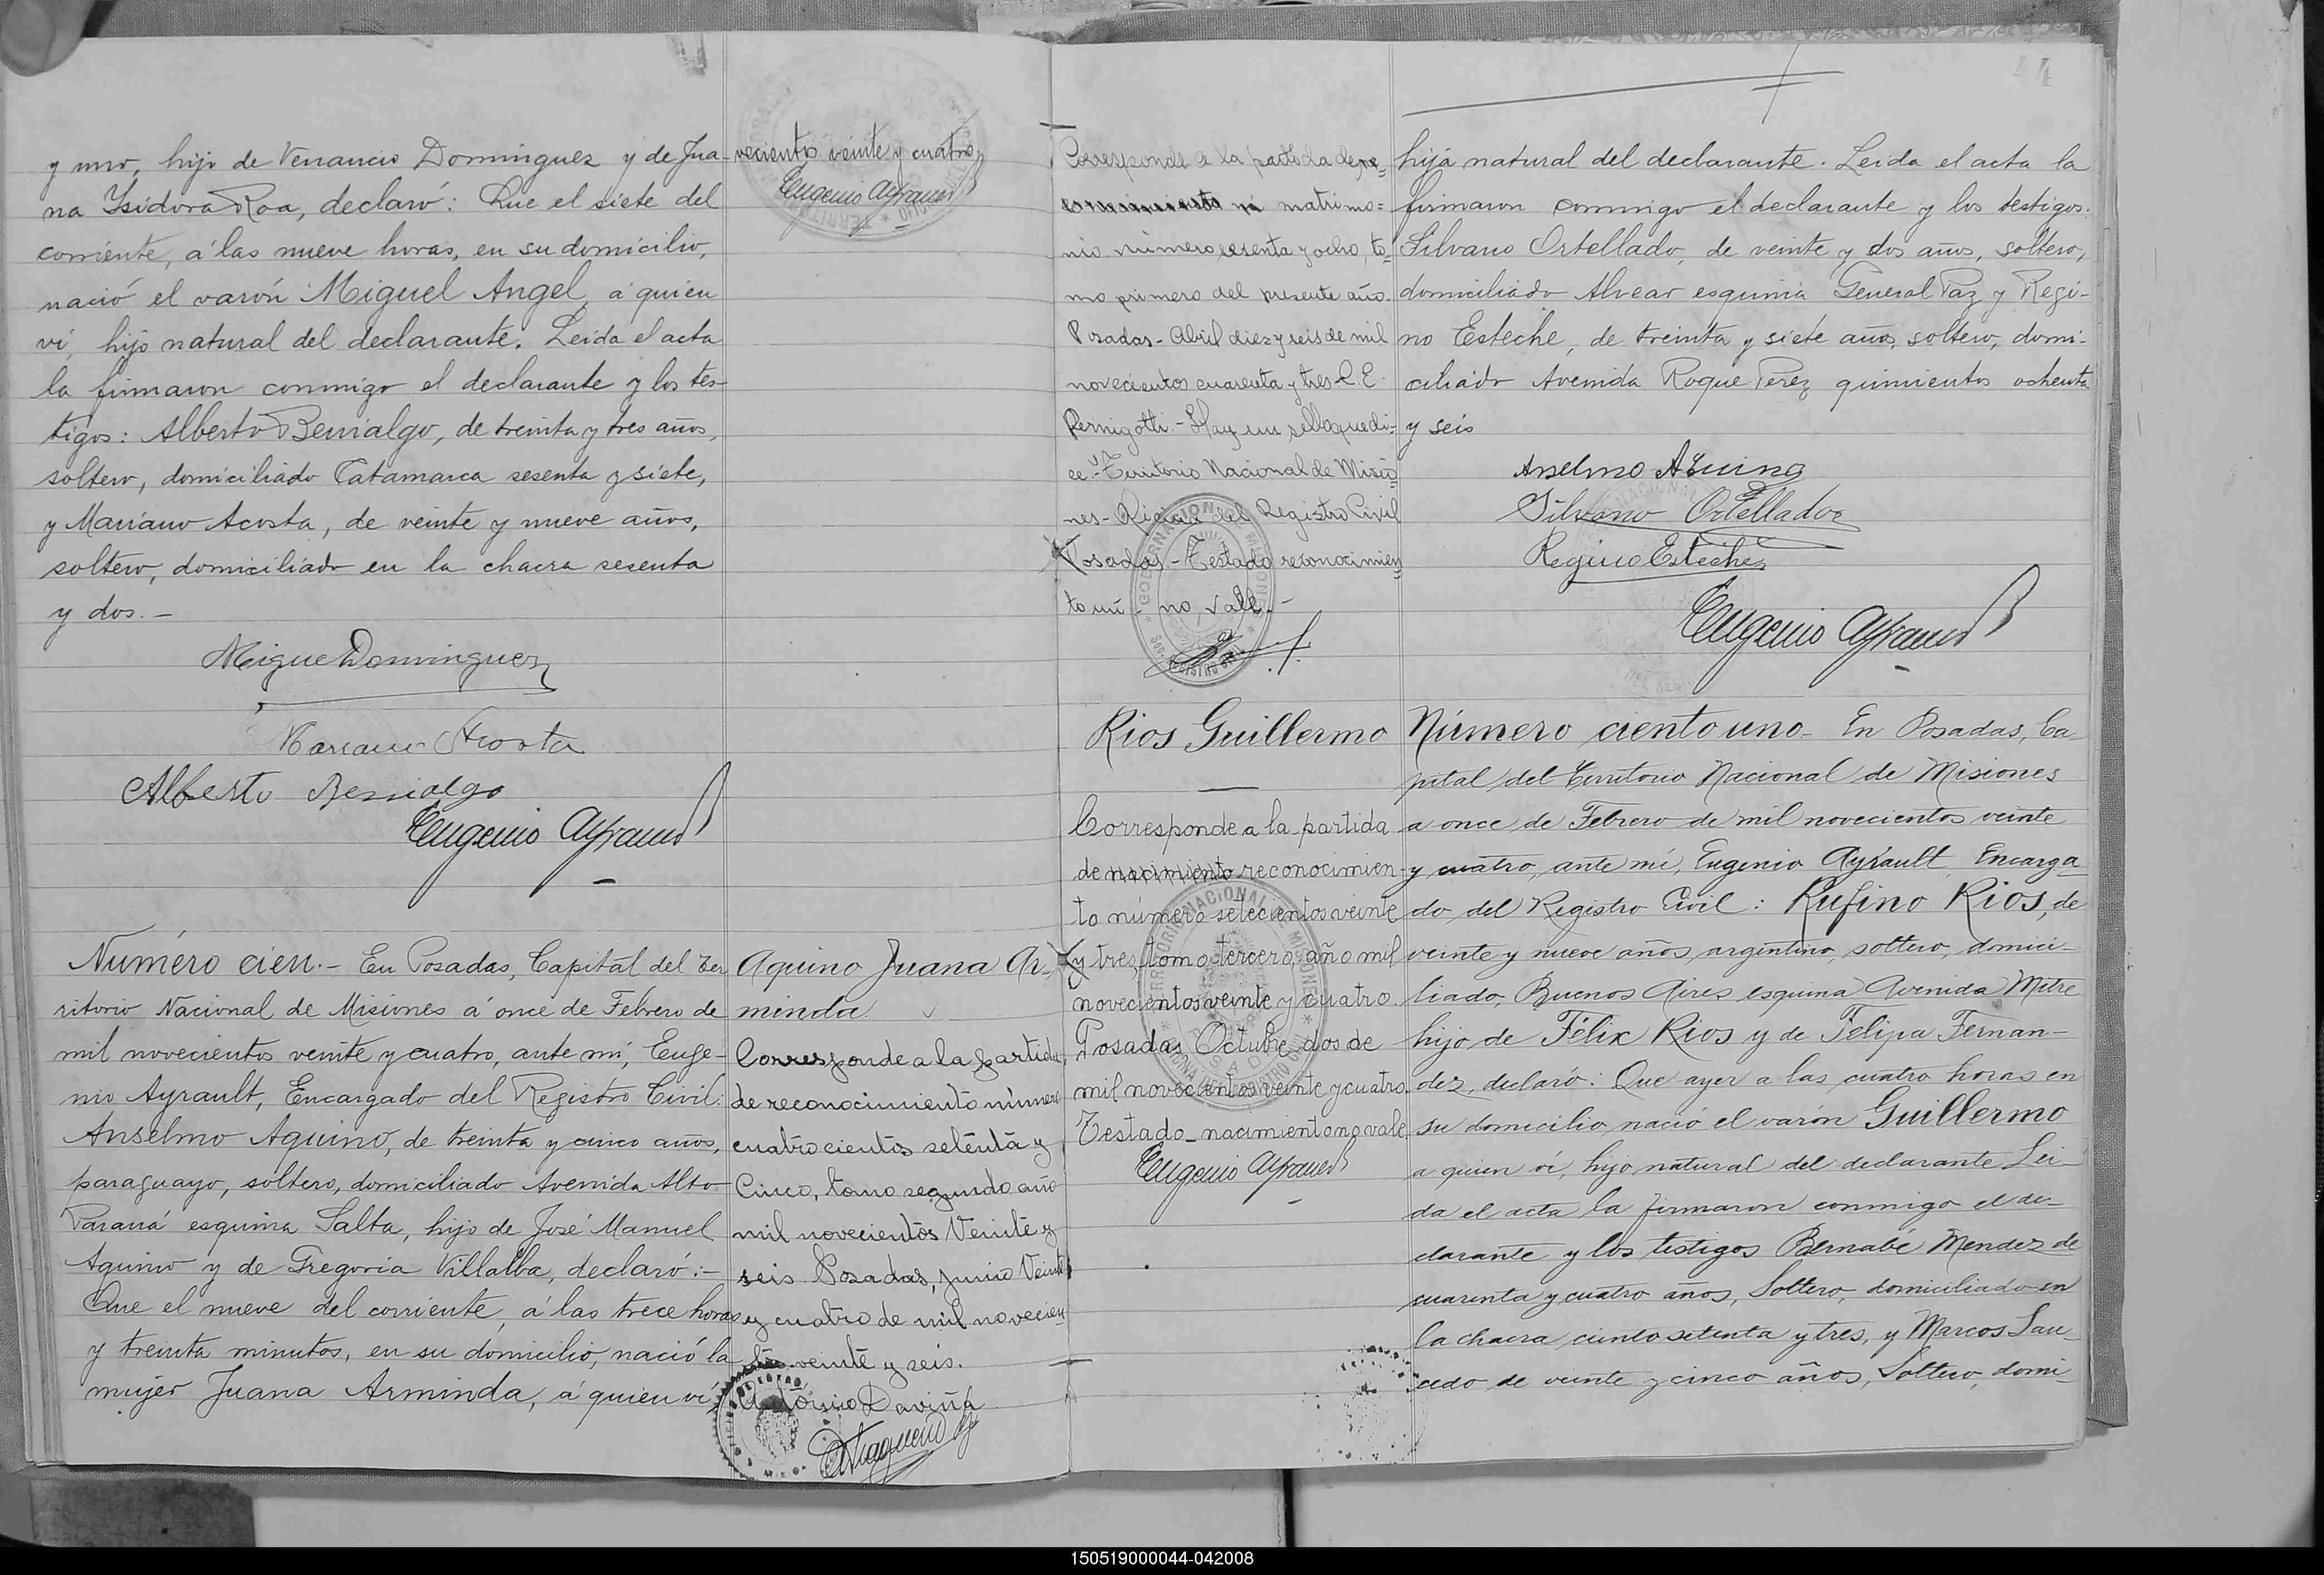 y uno, hijo de Venancio Dominguez y de Jua-
na Ysidora Roa, declaró: Que el siete del
corriente, á las nueve horas, en su domicilio,
nació el varón Miguel Angel, á quien
ví, hijo natural del declarante. Leida el acta
la firmaron conmigo el declarante y los tes-
tigos: Alberto Benialgo, de treinta y tres años,
soltero, domiciliado Catamarca sesenta y siete,
y Mariano Acosta, de veinte y nueve años,
soltero, domiciliado en la chacra sesenta
y dos.-
Migue Dominguez
Mariano Acosta
Alberto Benialgo
Eugenio Ayrault
vecientos veinte y cuatro
Eugenio Ayrault
Número cien.- En Posadas, Capital del Ter
ritorio Nacional de Misiones á once de Febrero de
mil novecientos veinte y cuatro, ante mí, Euge-
nio Ayrault, Encargado del Registro Civil:
Anselmo Aquino, de treinta y cinco años,
paraguayo, soltero, domiciliado Avenida Alto
Paraná esquina Salta, hijo de José Manuel
Aquino y de Gregoria Villalba, declaró:-
Que el nueve del corriente, á las trece horas
y treinta minutos, en su domicilio, nació la
mujer Juana Arminda, á quien ví,
Aquino Juana Ar-
minda
Corresponde a la partida
de reconocimiento número
cuatrocientos setenta y
Cinco, tomo segundo año
mil novecientos Veinte y
seis. Posadas, Junio Veinte
y cuatro de mil novecien
tos veinte y seis.
Daviña
Corresponde a la partida de
matrimo=
nio número sesenta y ocho, to=
mo primero del presente año.
Posadas- Abril diez y seis de mil
novecientos cuarenta y tres- C.E.
Pernigotti.- Hay un sello que di-
ce: "Territorio Nacional de Misio
nes- Oficina del Registro Civil
Posadas.- Testado reconocimien
to nú- no vale.-
44
hija natural del declarante. Leida el acta la
firmaron conmigo el declarante y los testigos:
Silvano Ortellado, de veinte y dos años, soltero,
domiciliado Alvear esquina General Paz y Regi-
no Esteche, de treinta y siete años, soltero, domi-
ciliado Avenida Roque Perez quinientos ochenta
y seis
Anselmo Aquino
Silvano Ortellado
Regino Esteche
Eugenio Ayrault
Rios Guillermo
Corresponde a la partida
de nacimiento reconocimien-
to número setecientos veinte
y tres, tomo tercero, año mil
novecientos veinte y cuatro.
Posadas Octubre dos de
mil novecientos veinte y cuatro.
Testado_nacimiento no vale
Eugenio Ayrault
Número ciento uno- En Posadas, Ca
pital del Territorio Nacional de Misiones
a once de Febrero de mil novecientos veinte
y cuatro, ante mí, Eugenio Ayrault Encarga
do del Registro Civil: Rufino Rios, de
veinte y nueve años, argentino, soltero, domici-
liado, Buenos Aires esquina Avenida Mitre
hijo de Félix Rios y de Felipa Fernan-
dez, declaró: Que ayer a las cuatro horas en
su domicilio nació el varón Guillermo
a quien ví, hijo natural del declarante Lei-
da el acta la firmaron conmigo el de-
clarante y los testigos Bernabé Mendez de
cuarenta y cuatro años, Soltero, domiciliado en
la chacra ciento setenta y tres, y Marcos Sau
cedo de veinte y cinco años, Soltero, domi
150519000044-042008